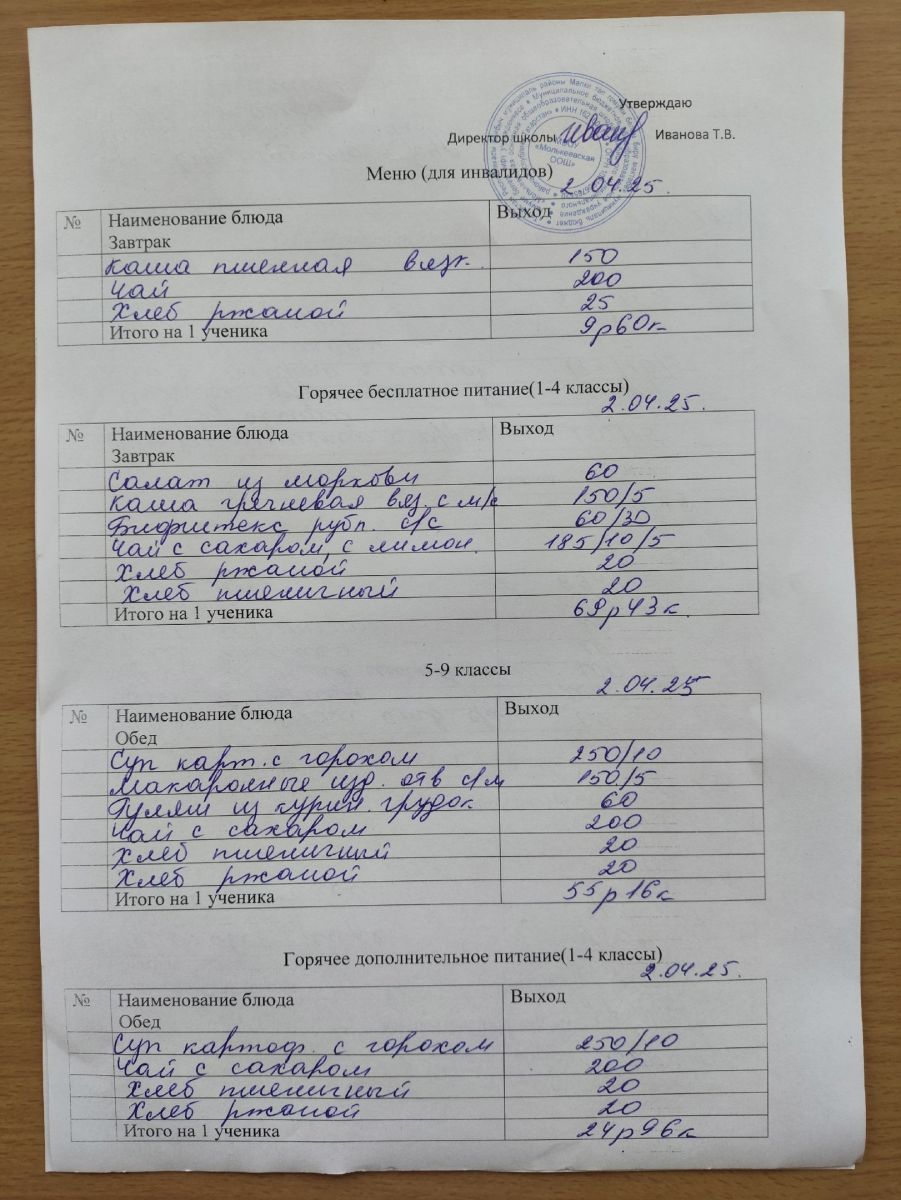 Утверждаю
Директор школы Иванова Т.В.
«Молькеевская
ООШ»
Меню (для инвалидов)
2.04.25.
№ Наименование блюда Выход
Завтрак
Каша пшенная вязк. 150
Чай 200
Хлеб ржаной 25
Итого на 1 ученика 9р60к
Горячее бесплатное питание(1-4 классы)
2.04.25.
№ Наименование блюда Выход
Завтрак
Салат из моркови 60
Каша гречневая вяз. с м/с 150/5
Бифштекс рубл. с/с 60/30
Чай с сахаром, с лимон. 185/10/5
Хлеб ржаной 20
Хлеб пшеничный 20
Итого на 1 ученика 69р43к.
5-9 классы
2.04.25
№ Наименование блюда Выход
Обед
Суп карт. с горохом 250/10
Макаронные изд. отв с/м 150/5
Гуляш из курин. грудок 60
Чай с сахаром 200
Хлеб пшеничный 20
Хлеб ржаной 20
Итого на 1 ученика 55р16к
Горячее дополнительное питание(1-4 классы)
2.04.25.
№ Наименование блюда Выход
Обед
Суп картоф. с горохом 250/10
Чай с сахаром 200
Хлеб пшеничный 20
Хлеб ржаной 20
Итого на 1 ученика 24р96к